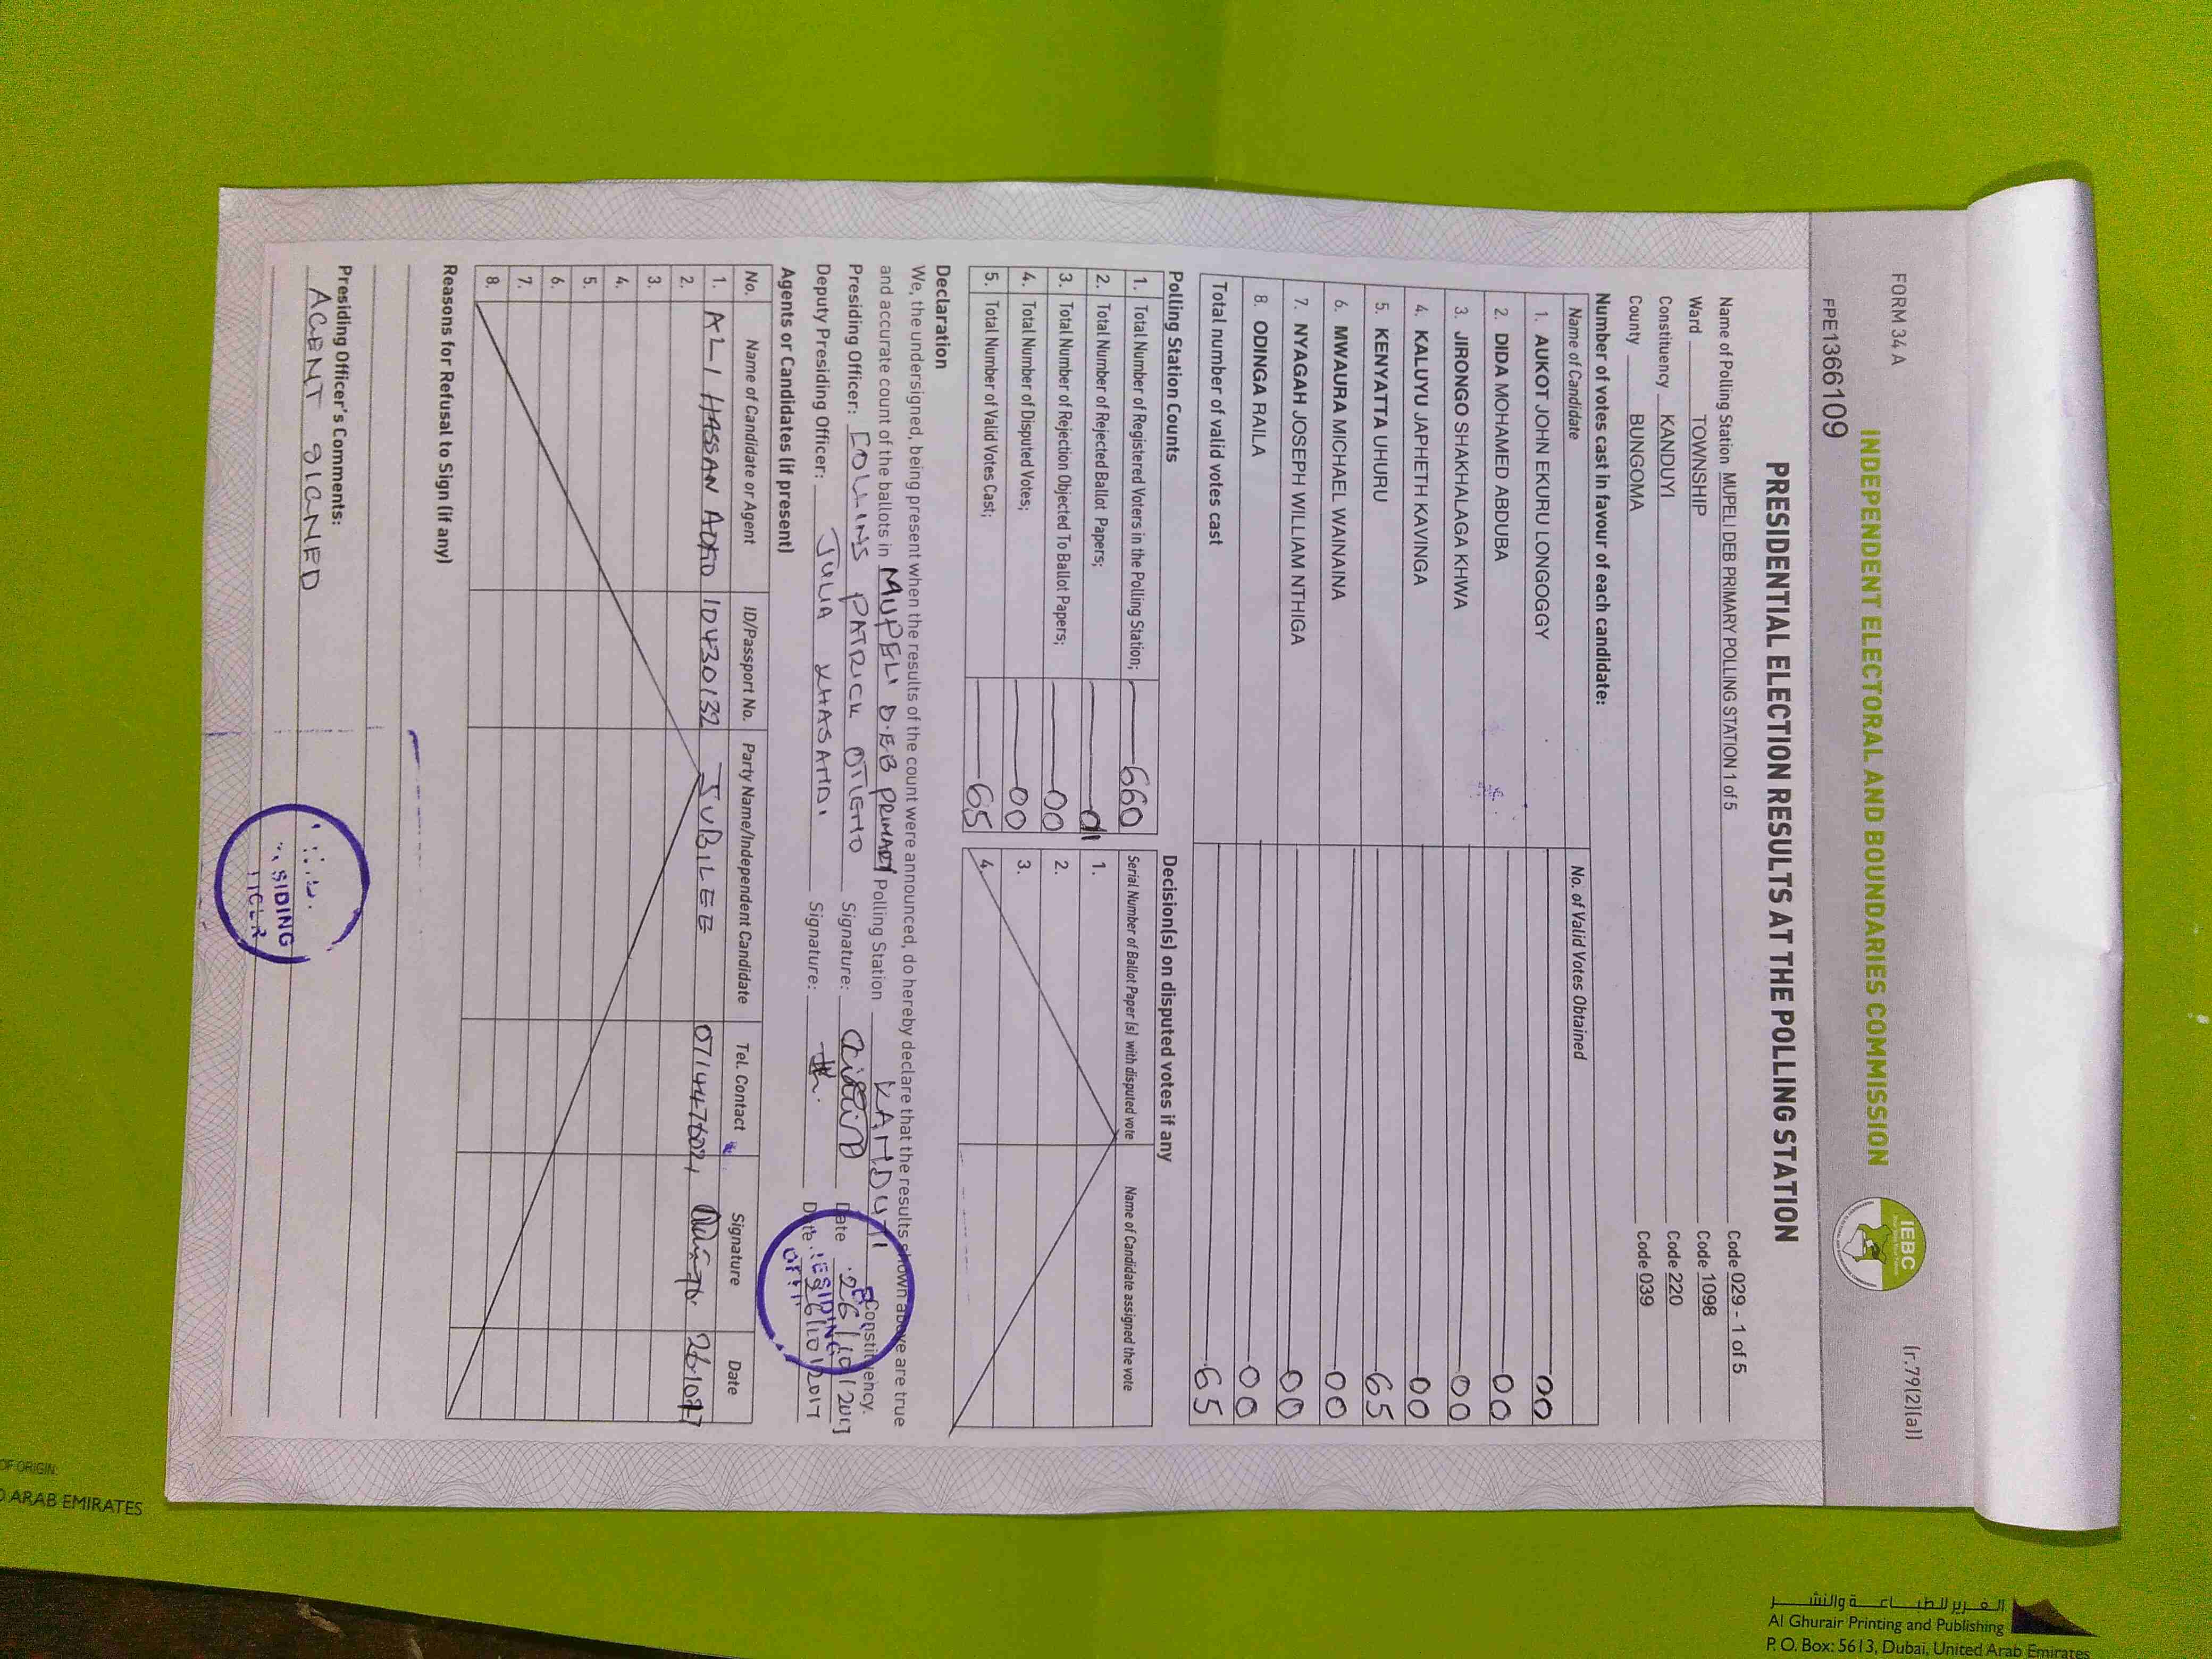 FORM 34 A
(r.79(2)(a))
INDEPENDENT ELECTORAL AND BOUNDARIES COMMISSION
IEBC
FPE1366109
PRESIDENTIAL ELECTION RESULTS AT THE POLLING STATION
Name of Polling Station MUPELI DEB PRIMARY POLLING STATION 1 of 5 Code 029 - 1 of 5
Ward TOWNSHIP Code 1098
Constituency KANDUYI Code 220
County BUNGOMA Code 039
Number of votes cast in favour of each candidate:
Name of Candidate No. of Valid Votes Obtained
1. AUKOT JOHN EKURU LONGOGGY 00
2. DIDA MOHAMED ABDUBA 00
3. JIRONGO SHAKHALAGA KHWA 00
4. KALUYU JAPHETH KAVINGA 00
5. KENYATTA UHURU 65
6. MWAURA MICHAEL WAINAINA 00
7. NYAGAH JOSEPH WILLIAM NTHIGA 00
8. ODINGA RAILA 00
Total number of valid votes cast 65
Polling Station Counts
1. Total Number of Registered Voters in the Polling Station; 660
2. Total Number of Rejected Ballot Papers;
3. Total Number of Rejection Objected To Ballot Papers; 00
4. Total Number of Disputed Votes; 00
5. Total Number of Valid Votes Cast; 65
Decision(s) on disputed votes if any
Serial Number of Ballot Paper (s) with disputed vote Name of Candidate assigned the vote
1.
2.
3.
4.
Declaration
We, the undersigned, being present when the results of the count were announced, do hereby declare that the results shown above are true
and accurate count of the ballots in MUPELI D.E.B PRIMARY Polling Station KANDUYI Constituency.
Presiding Officer: COLLINS PATRICK OTIENO Signature: Date 26/10/2017
Deputy Presiding Officer: JULIA KHASANDI Signature: Date 26/10/2017
Agents or Candidates (if present)
No. Name of Candidate or Agent ID/Passport No. Party Name/Independent Candidate Tel. Contact Signature Date
1. ALI HASSAN 10430132 JUBILEE
2.
3.
4.
5.
6.
7.
8.
Reasons for Refusal to Sign (if any)
Presiding Officer's Comments:
AGENT SIGNED
SIDING
OF ORIGIN:
ARAB EMIRATES
الغرير للطباعة والنشر
Al Ghurair Printing and Publishing
P. O. Box: 5613, Dubai, United Arab Emirates